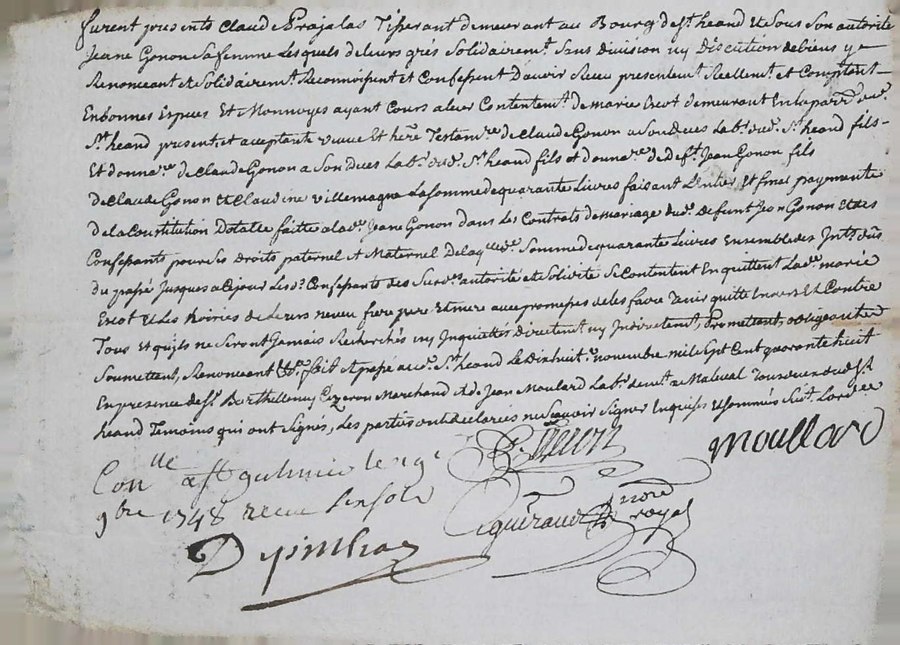 furent presents Claude Brajalas Tisserant demeurant au Bourg de st. heand et Sous Son autorité
Jeane Gonon Safemme Lesquels de leurs grès Solidairemt. Sans division ny Discution de biens y
Renonceant et Solidairemt. Reconnoissent et Confessent D'auoir Receu presentemt. Reellemt. et Comptant
En bonnes Especes Et Monnoyes ayant Cours a leur Contentemt. de marie Exot demeurant En la parr. dud.
St. heand present, et acceptante veuve Et here. Testamre. de Claude Gonon a Son deces Labr. dud. St. heand fils
Et donnare. de Claude Gonon a Son deces Labr. dud. St. heand fils et donnare. de deft. Jean Gonon fils
de Claude Gonon et Claudine villemagne La Somme de quarante Livres faisant L'entier Et final payment
de la Constitution Dotalle faitte a lad. Jeane Gonon dans Les Contrats de mariage dud. defunt Jean Gonon Et des
Confessants pour Ses Droits paternel et Maternel De laqlle. de. Somme de quarante Livres Ensemble des Intts. d'
du passé Jusques a Cejour Lesds. Confessants des Susds. autorité et Solidité Se Contentent En quittent Lade. marie
Exot Et Les hoiries de leurs neveu frere pere Et mere auec promesses de les faire Tenir quitte Envers Et Contre
Tous Et quils ne Seront Jamais Recherchés ny Inquiettés Directemt. ny Indirectemt., Promettant, obligeant
Soumettant, Renonceant &a. fait Et passé aud. St. heand Le Dixhuite. novembre mil Sept Cent quarante huit
En presence de Sr. Barthellemy Ezeron Marchand Et de Jean Moulard Labr. demt. a Malleval Tous deux dud. St.
heand Temoins qui ont Signés, Les parties ont declarées ne Sçavoir Signer Enquises Et Sommés Suivt. Lordce.
Conlle. a st le
9bre 1748 receu
moullard
nore. royal